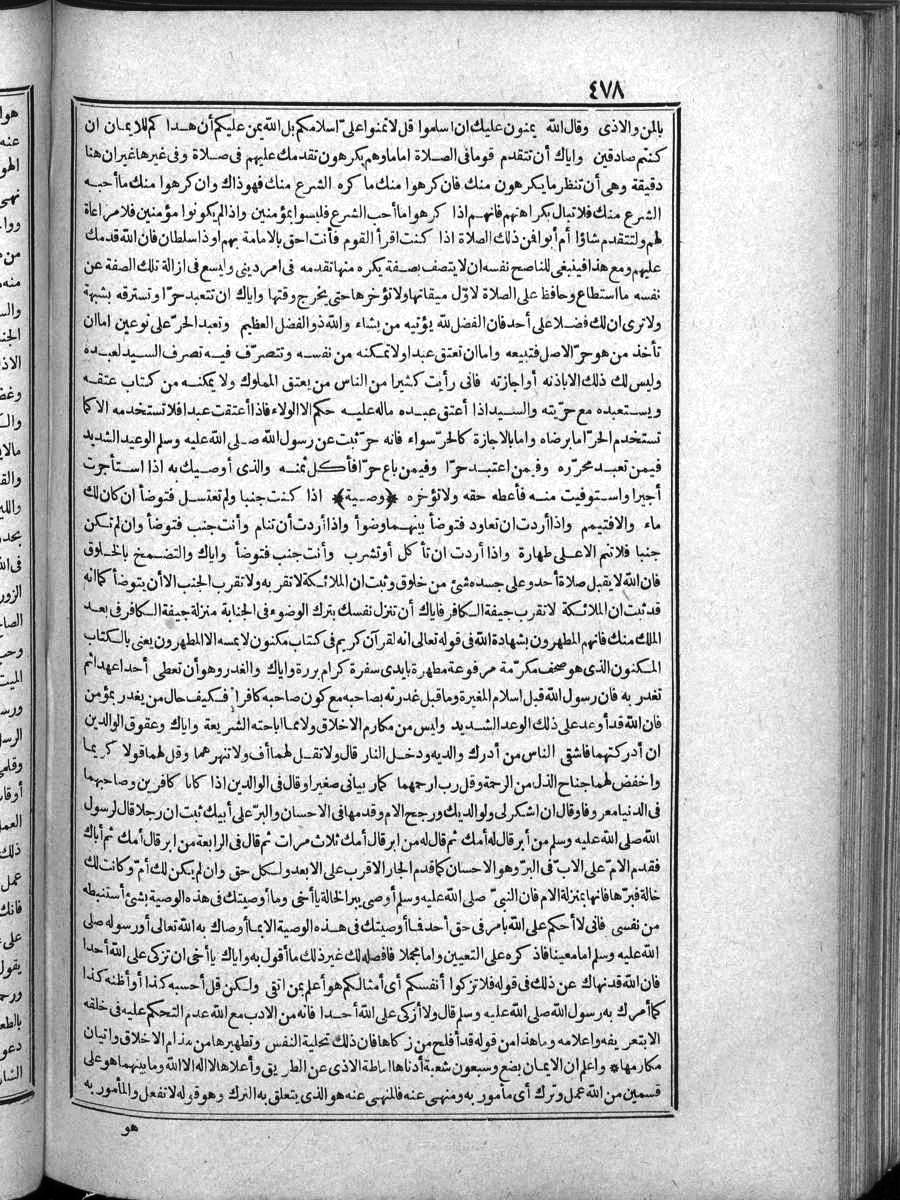 ٤٧٨
بالمن والاذى وقال الله يمنون عليك ان اسلموا قل لا تمنوا على اسلامكم بل الله يمن عليكم أن هدا كم للايمان ان
كنتم صادقين واياك أن تتقدم قوما فى الصلاة اماما وهم يكرهون تقدمك عليهم فى صلاة وفى غيرها غير ان هنا
دقيقة وهى أن تنظر ما يكرهون منك فان كرهوا منك ما كره الشرع منك فهوذاك وان كرهوا منك ما أحبه
الشرع منك فلا تبال بكراهتهم فانهم اذا كرهوا ما أحب الشرع فليسوا بمؤمنين واذا لم يكونوا مؤمنين فلا مراعاة
لهم ولتتقدم شاؤا أم أبوا فن ذلك الصلاة اذا كنت اقرأ القوم فأنت احق بالامامة بهم او ذا سلطان فان الله قدمك
عليهم ومع هذا فينبغى للناصح نفسه ان لا يتصف بصفة يكره منها تقدمه فى امر دينى وليسع فى ازالة تلك الصفة عن
نفسه ما استطاع وحافظ على الصلاة لاوّل ميقاتها ولا تؤخرها حتى يخرج وقتها واياك ان تتعبد حرّا وتسترقه بشبهة
ولا ترى ان لك فضلا على أحد فان الفضل لله يؤتيه من يشاء والله ذو الفضل العظيم وتعبد الحرّ على نوعين اما ان
تأخذ من هو حرّ الاصل فتبيعه واما ان تعتق عبدا ولا تمكنه من نفسه وتتصرّف فيه تصرف السيد لعبده
وليس لك ذلك الا باذنه أو اجازته فانى رأيت كثيرا من الناس من يعتق المملوك ولا يمكنه من كتاب عتقه
ويستعبده مع حرّيته والسيد اذا أعتق عبده ماله عليه حكم الا الولاء فاذا أعتقت عبدا فلا تستخدمه الا كما
تستخدم الحرّ اما برضاه واما بالاجازة كالحرّ سواء فانه حرّ ثبت عن رسول الله صلى الله عليه وسلم الوعيد الشديد
فيمن تعبد محرّره وفيمن اعتبد حرّا وفيمن باع حرّا فأكل ثمنه والذى أوصيك به اذا استأجرت
أجيرا واستوفيت منه فأعطه حقه ولا تؤخره ﴿وصية﴾ اذا كنت جنبا ولم تغتسل فتوضأ ان كان لك
ماء والا فتيمم واذا أردت ان تعاود فتوضأ بينهما وضوأ واذا أردت أن تنام وأنت جنب فتوضأ وان لم تكن
جنبا فلا تنم الا على طهارة واذا أردت ان تأكل أو تشرب وأنت جنب فتوضأ واياك والتضمخ بالخلوق
فان الله لا يقبل صلاة أحد وعلى جسده شئ من خلوق وثبت ان الملائكة لا تقربه ولا تقرب الجنب الا أن يتوضأ كما انه
قد ثبت ان الملائكة لا تقرب جيفة الكافر فاياك أن تنزل نفسك بترك الوضوء فى الجنابة منزلة جيفة الكافر فى بعد
الملك منك فانهم المطهرون بشهادة الله فى قوله تعالى انه لقرآن كريم فى كتاب مكنون لا يمسه الا المطهرون يعنى بالكتاب
المكنون الذى هو صحف مكرّمة مرفوعة مطهرة بايدى سفرة كرام بررة واياك والغدر وهو أن تعطى أحدا عهدا ثم
تغدر به فان رسول الله قبل اسلام المغيرة وما قبل غدرته بصاحبه مع كون صاحبه كافرا فكيف حال من يغدر بمؤمن
فان الله قد أوعد على ذلك الوعد الشديد وليس من مكارم الاخلاق ولا مما اباحته الشريعة واياك وعقوق الوالدين
ان أدركتهما فاشقى الناس من أدرك والديه ودخل النار قال ولا تقل لهما أف ولا تنهرهما وقل لهما قولا كريما
واخفض لهما جناح الذل من الرحمة وقل رب ارحمهما كما ربيانى صغيرا وقال فى الوالدين اذا كانا كافرين وصاحبهما
فى الدنيا معروفا وقال ان اشكر لى ولوالديك ورجح الام وقدمها فى الاحسان والبرّ على أبيك ثبت ان رجلا قال لرسول
الله صلى الله عليه وسلم من أبر قال له أمك ثم قال له من ابر قال أمك ثلاث مرات ثم قال فى الرابعة من ابر قال أمك ثم أباك
فقدم الامّ على الاب فى البرّ وهو الاحسان كما قدم الجار الاقرب على الابعد ولكل حق وان لم يكن لك أمّ وكانت لك
خالة فبرّها فانها بمنزلة الام فان النبىّ صلى الله عليه وسلم أوصى ببر الخالة يا أخى وما أوصيتك فى هذه الوصية بشئ أستنبطه
من نفسى فانى لا أحكم على الله بامر فى حق أحد فما أوصيتك فى هذه الوصية الا بما أوصاك به الله تعالى أو رسوله صلى
الله عليه وسلم اما معينا فاذكره على التعيين واما مجملا فافصله لك غير ذلك ما أقول به واياك يا أخى ان تزكى على الله أحدا
فان الله قد نهاك عن ذلك فى قوله فلا تزكوا أنفسكم أى أمثالكم هو أعلم بمن اتقى ولكن قل أحسبه كذا أو أظنه كذا
كما أمرك به رسول الله صلى الله عليه وسلم قال ولا أزكى على الله أحدا فانه من الادب مع الله عدم التحكم عليه فى خلقه
الا بتعريفه واعلامه وما هذا من قوله قد أفلح من زكاها فان ذلك تحلية النفس وتطهيرها من مذام الاخلاق واتيان
مكارمها* واعلم ان الايمان بضع وسبعون شعبة أدناها اماطة الاذى عن الطريق وأعلاها لا اله الا الله وما بينهما هو على
قسمين من الله عمل وترك أى مأمور به ومنهى عنه فالمنهى عنه هو الذى يتعلق به الترك وهو قوله لا تفعل والمأمور به
هو